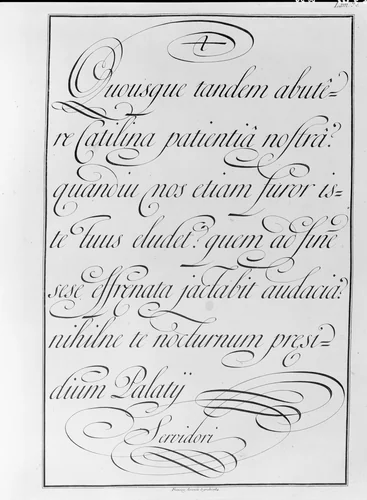 A
Quousque tandem abutê=
re Catilina patientiâ nostrâ?
quandiu nos etiam furor is=
te tuus eludet? quem ad finẽ
sese effrenata jactabit audacia?
nihilne te nocturnum presi=
dium Palatij
Servidori